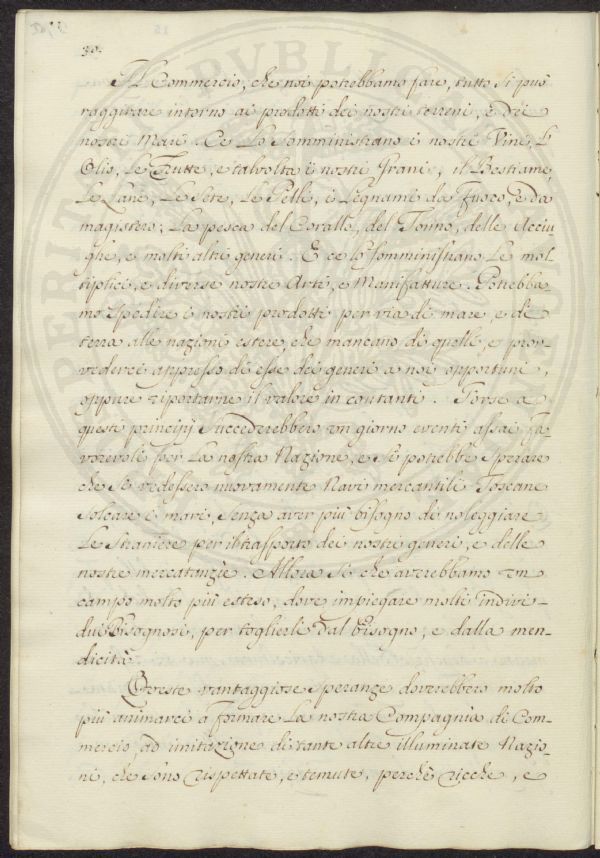 30.
Il Commercio, che noi potrebbamo fare, tutto si può
raggirare intorno ai prodotti dei nostri terreni, e dei
nostri Mari. Ce lo somministrano i nostri Vini, L'
Olio, Le Frutte, e talvolta i nostri grani, il Bestiame,
Le Lane, Le Sete, Le Pelli, i Legnami da fuoco, e da
magistero; La pesca del Corallo, del Tonno, delle Acciu
ghe, e molti altri generi. E ce lo somministrano Le mol
tiplici, e diverse nostre Arti, e Manifatture. Potrebba
mo spedire i nostri prodotti per via di mare, e di
terra alle nazioni estere, che mancano di quelli, e prov
vederci appresso di esse dei generi a noi opportuni,
oppure riportarne il valore in contanti. Forse a
questi principj succederebbero un giorno eventi assai fa
vorevoli per La nostra Nazione, e si potrebbe sperare
che si vedessero nuovamente Navi mercantili Toscane
solcare i mari, senza aver più bisogno di noleggiare
Le straniere per il trasporto dei nostri generi, e delle
nostre mercatanzie. Allora sì che averebbamo un
campo molto più esteso, dove impiegare molti indivi-
dui Bisognosi, per toglierli dal bisogno, e dalla men-
dicità.
Queste vantaggiose speranze doverebbero molto
più animarci a formare La nostra Compagnia di Com-
mercio, ad imitazione di tante altre illuminate Nazio-
ni, che sono rispettate, e temute, perchè ricche, e